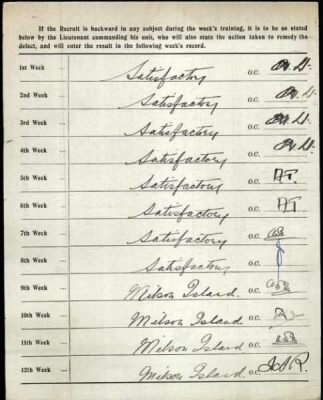 If the Recruit is backward in any subject during the week's training, it is to be so stated
below by the Lieutenant commanding his unit, who will also state the action taken to remedy the
defect, and will enter the result in the following week's record.
1st Week ... Satisfactory O.C.
2nd Week ... Satisfactory O.C.
3rd Week ... Satisfactory O.C.
4th Week ... Satisfactory O.C.
5th Week ... Satisfactory O.C. A.T.
6th Week ... Satisfactory O.C. A.T.
7th Week ... Satisfactory O.C.
8th Week ... Satisfactory O.C.
9th Week ... Milson Island. O.C.
10th Week ... Milson Island. O.C.
11th Week ... Milson Island O.C.
12th Week ... Milson Island. O.C.